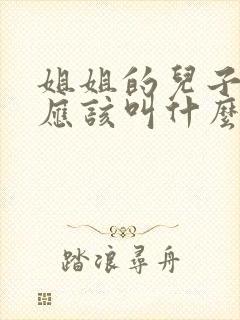 姐姐的兒子
應該叫什麼
踏浪尋舟